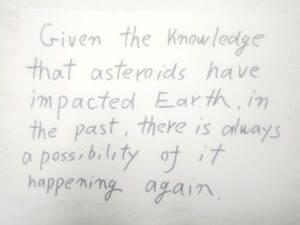 Given the Knowledge
that asteroids have
impacted Earth, in
the past, there is always
a possibility of it
happening again.